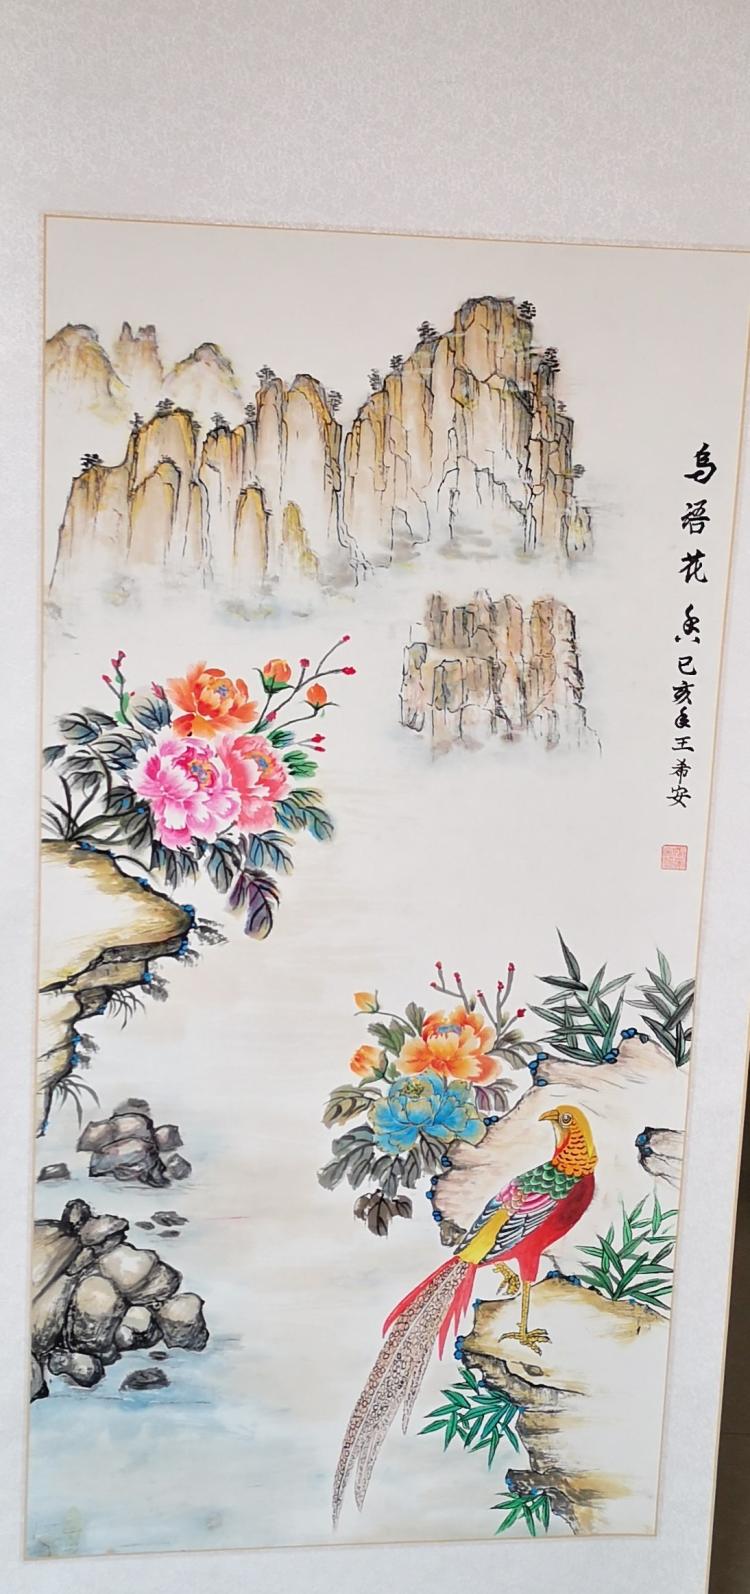 鸟语花香己亥年王希安